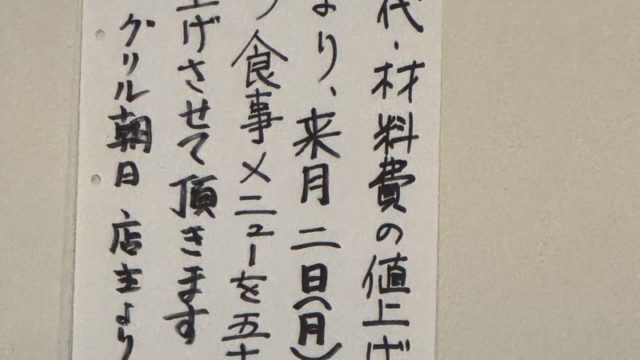 代・材料費の値上げ
より、来月二日(月)
食事メニューを五十
上げさせて頂きます
グリル朝日 店主より